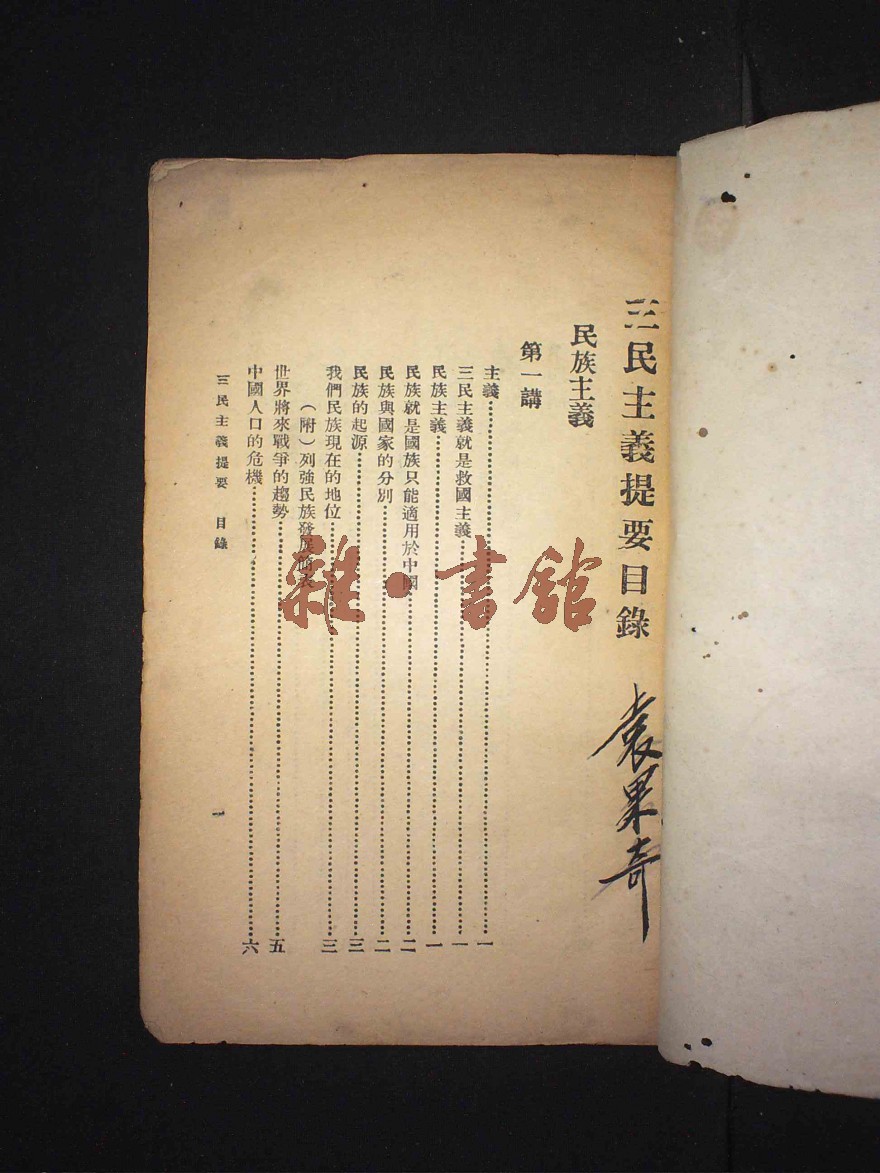 三民主義提要目錄
袁果奇
民族主義
第一講
主義⋯⋯⋯⋯⋯⋯⋯⋯一
三民主義就是救國主義⋯⋯⋯⋯⋯⋯⋯⋯一
民族主義⋯⋯⋯⋯⋯⋯⋯⋯一
民族就是國族只能適用於中國⋯⋯⋯⋯⋯⋯⋯⋯二
民族與國家的分別⋯⋯⋯⋯⋯⋯⋯⋯二
民族的起源⋯⋯⋯⋯⋯⋯⋯⋯三
我們民族現在的地位⋯⋯⋯⋯⋯⋯⋯⋯三
（附）列強民族發展簡表
世界將來戰爭的趨勢⋯⋯⋯⋯⋯⋯⋯⋯五
中國人口的危機⋯⋯⋯⋯⋯⋯⋯⋯六
三民主義提要 目錄
一
雜·書館